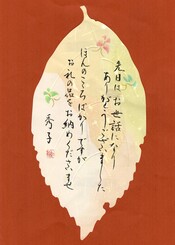 先日はお世話になり
ありがとうございました
ほんのこころばかりですが
お礼の品をお納めくださいませ
秀子